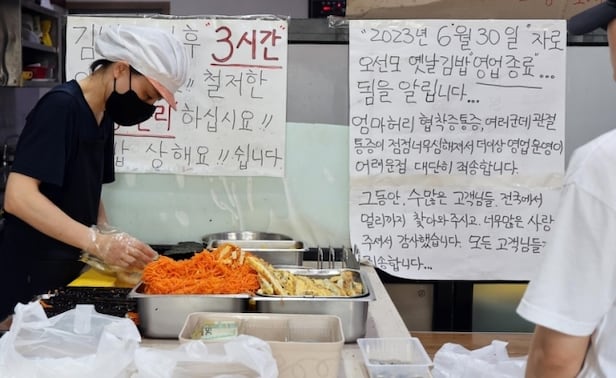 3시간"
철저한
하십시요"!!
상해요 !! 쉽니다
"2023년 6월 30일" "자로
오선모 옛날김밥"영업종료"...
됨을 알립니다...
엄마허리 협착증통증, 여러군데 관절
통증이 점점너무심해져서 더이상 영업운영이
어려운점 대단히 죄송합니다.
그동안, 수많은 고객님들. 전국에서
멀리까지 찾아와주시고. 너무많은 사랑
주셔서 감사했습니다. 모든 고객님들
죄송합니다...